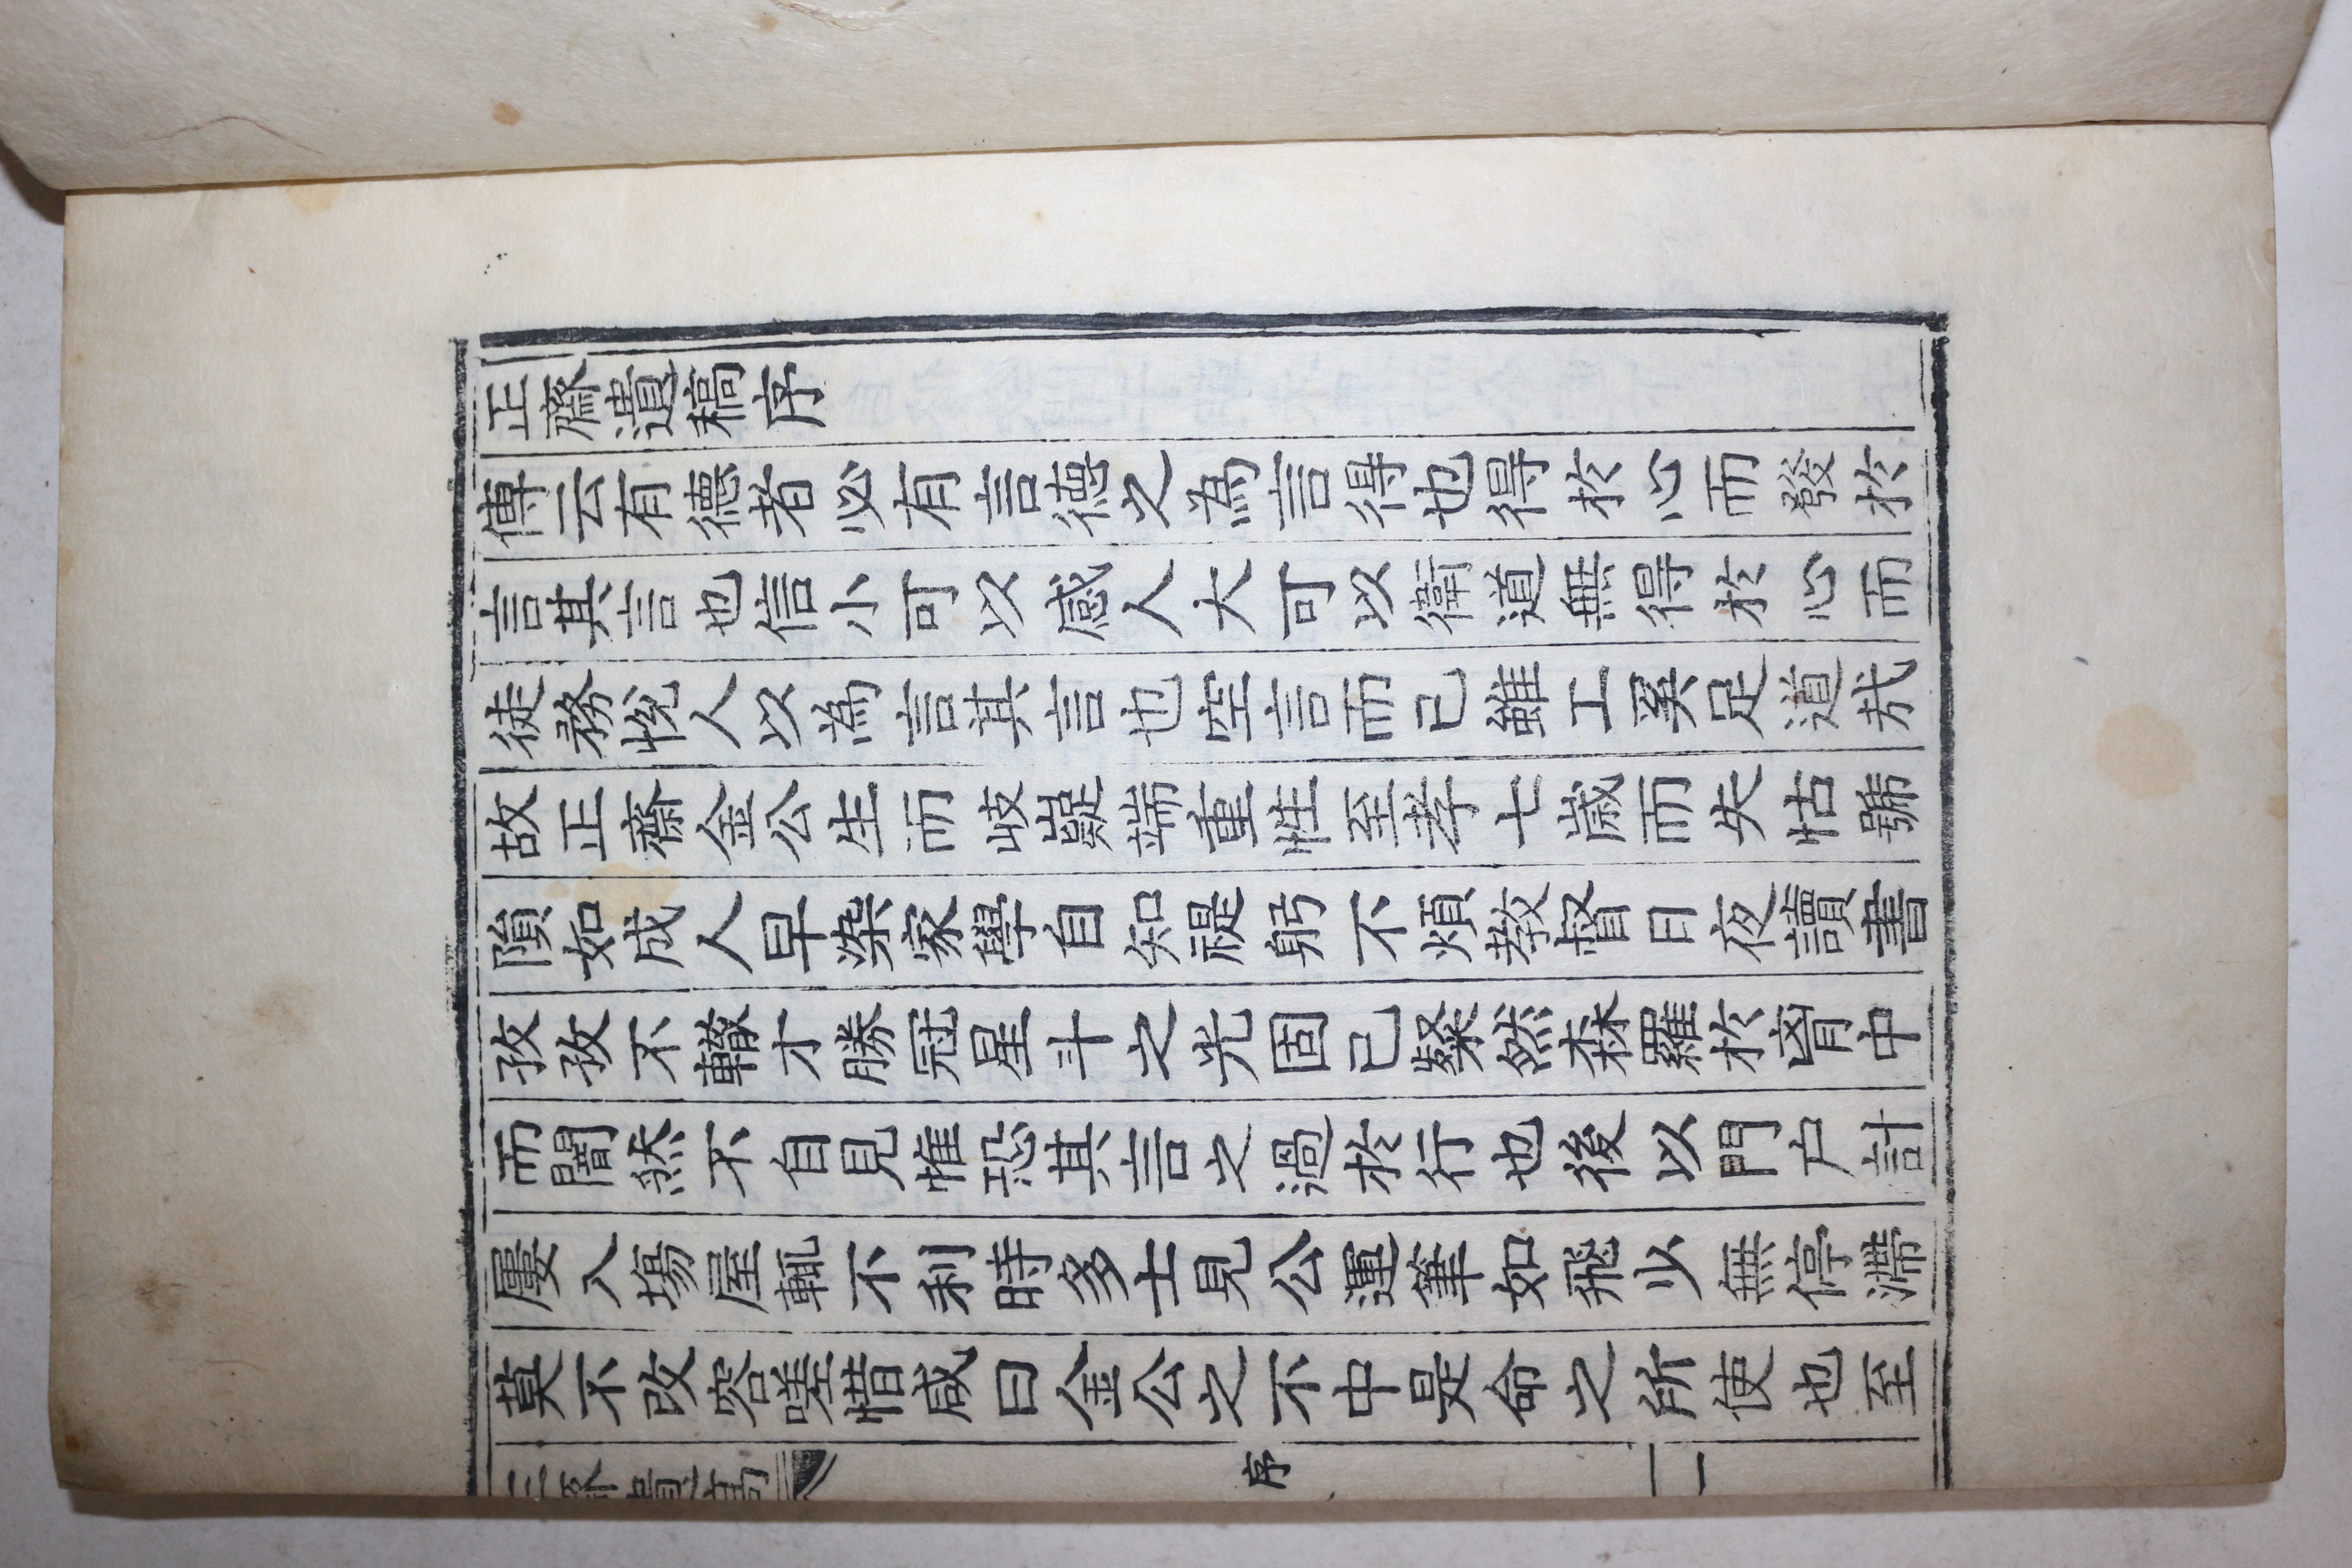 正齋遺稿序
傳云有德者必有言德之為言得也得於心而發於
言其言也信小可以感人大可以衛道無得於心而
徒務悅人以為言其言也空言而已雖工奚足道哉
故正齋金公生而岐嶷端重性至孝七歲而失怙號
隕如成人早染家學自知禔躬不煩教督日夜讀書
孜孜不轍才勝冠星斗之光固已粲然森羅於胷中
而闇然不自見惟恐其言之過於行也後以門户計
屢入塲屋輒不利時多士見公運筆如飛少無停滯
莫不改容嗟惜咸曰金公之不中是命之所使也至
正齋遺稿
序
一